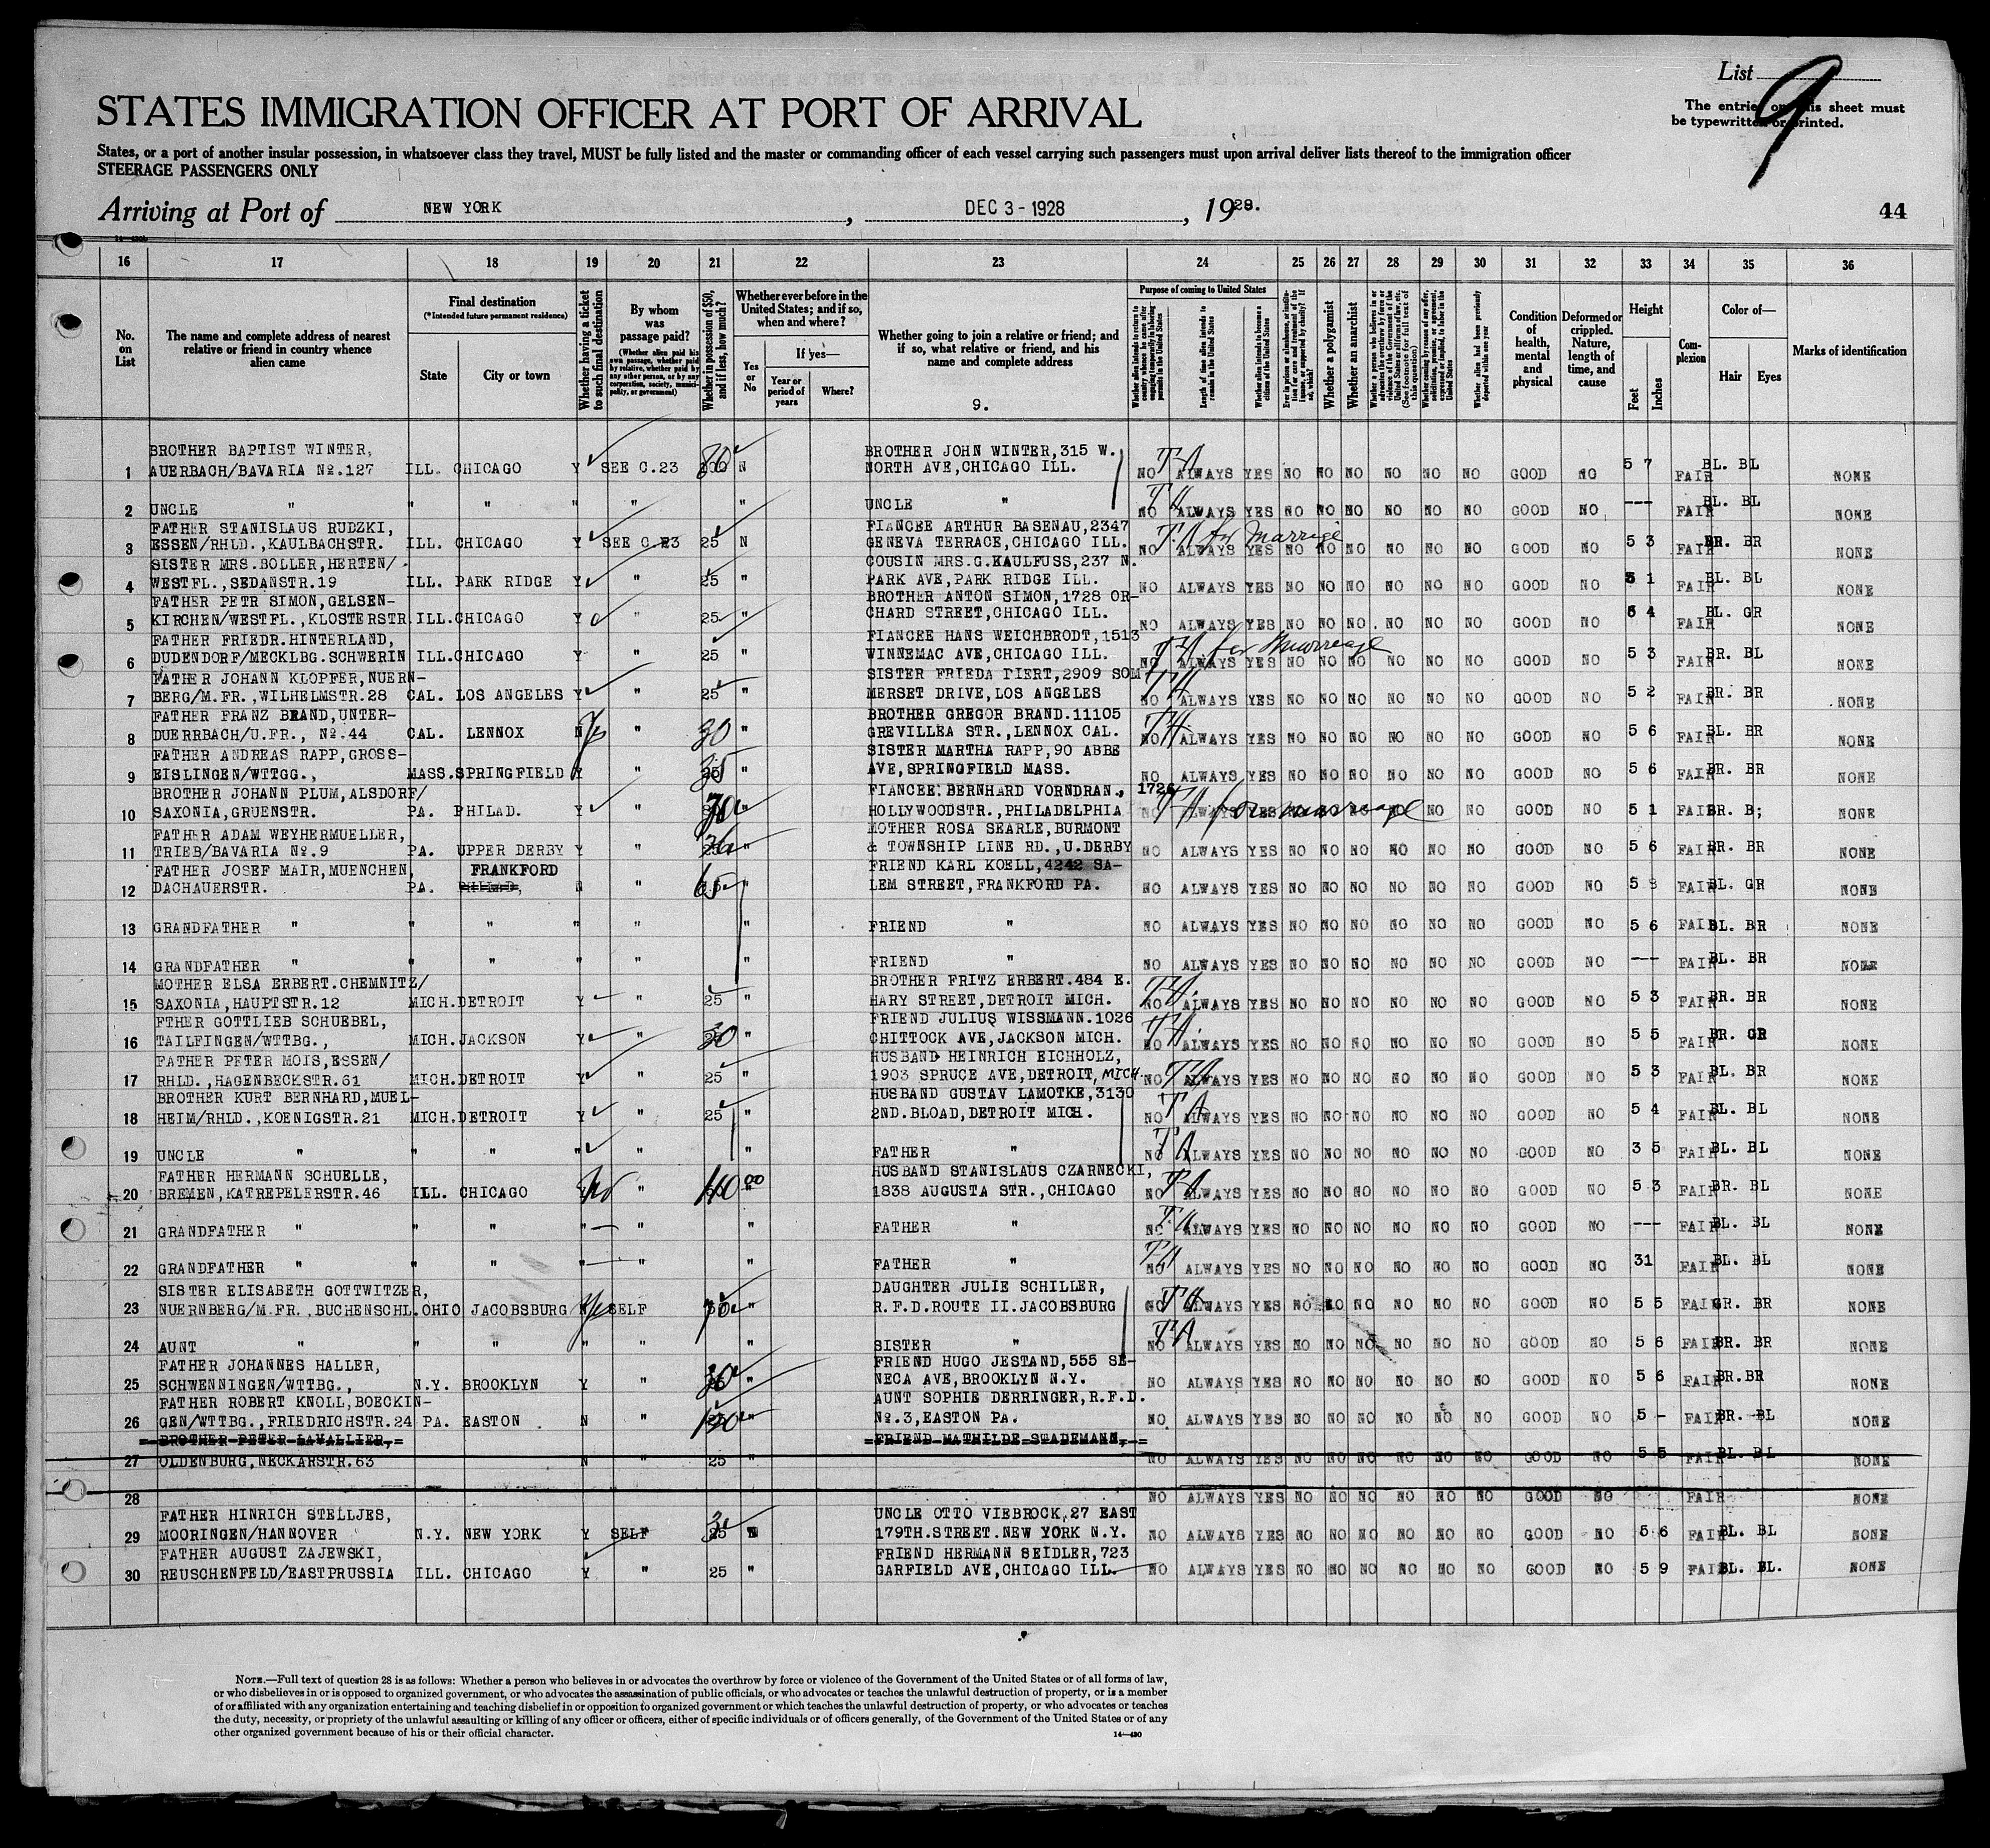 List 9
The entries on this sheet must
be typewritten or printed.
STATES IMMIGRATION OFFICER AT PORT OF ARRIVAL
States, or a port of another insular possession, in whatsoever class they travel, MUST be fully listed and the master or commanding officer of each vessel carrying such passengers must upon arrival deliver lists thereof to the immigration officer
STEERAGE PASSENGERS ONLY
Arriving at Port of NEW YORK, DEC 3 - 1928, 1928.
44
16 17 18 19 20 21 22 23 24 25 26 27 28 29 30 31 32 33 34 35 36
No. on List
The name and complete address of nearest relative or friend in country whence alien came
Final destination
(*Intended future permanent residence)
State
City or town
Whether having a ticket to such final destination
By whom was passage paid?
(Whether alien paid his own passage, whether paid by relative, whether paid by any other person, or by any corporation, society, municipality, or government)
Whether in possession of $50, and if less, how much?
Whether ever before in the United States; and if so, when and where?
Yes or No
If yes—
Year or period of years
Where?
Whether going to join a relative or friend; and if so, what relative or friend, and his name and complete address
9.
Purpose of coming to United States
Length of time alien intends to remain in the United States
Whether alien intends to become a citizen of the United States
Whether a polygamist
Whether an anarchist
Condition of health, mental and physical
Deformed or crippled. Nature, length of time, and cause
Height
Feet
Inches
Complexion
Color of—
Hair
Eyes
Marks of identification
BROTHER BAPTIST WINTER, BROTHER JOHN WINTER,315 W.
1 AUERBACH/BAVARIA No.127 ILL. CHICAGO Y SEE C.23 80 N NORTH AVE,CHICAGO ILL. NO ALWAYS YES NO NO NO NO NO NO GOOD NO 5 7 FAIR BL. BL NONE
2 UNCLE " " " " " " UNCLE " NO ALWAYS YES NO NO NO NO NO NO GOOD NO --- FAIR BL. BL NONE
FATHER STANISLAUS RUDZKI, FIANCEE ARTHUR BASENAU,2347
3 ESSEN/RHLD.,KAULBACHSTR. ILL. CHICAGO Y SEE C.23 25 N GENEVA TERRACE,CHICAGO ILL. NO T.A for Marriage ALWAYS YES NO NO NO NO NO NO GOOD NO 5 3 FAIR BR. BR NONE
SISTER MRS.BOLLER,HERTEN/ COUSIN MRS.G.KAULFUSS,237 N.
4 WESTFL.,SEDANSTR.19 ILL. PARK RIDGE Y " 25 " PARK AVE,PARK RIDGE ILL. NO ALWAYS YES NO NO NO NO NO NO GOOD NO 5 1 FAIR BL. BL NONE
FATHER PETR SIMON,GELSEN- BROTHER ANTON SIMON,1728 OR-
5 KIRCHEN/WESTFL.,KLOSTERSTR. ILL. CHICAGO Y " 25 " CHARD STREET,CHICAGO ILL. NO ALWAYS YES NO NO NO NO NO NO GOOD NO 5 4 FAIR BL. GR NONE
FATHER FRIEDR.HINTERLAND, FIANCEE HANS WEICHBRODT,1513
6 DUDENDORF/MECKLBG.SCHWERIN ILL. CHICAGO Y " 25 " WINNEMAC AVE,CHICAGO ILL. NO T.A for Marreage ALWAYS YES NO NO NO NO NO NO GOOD NO 5 3 FAIR BR. BL NONE
FATHER JOHANN KLOPFER,NUERN- SISTER FRIEDA PIERT,2909 SOM-
7 BERG/M.FR.,WILHELMSTR.28 CAL. LOS ANGELES Y " 25 " MERSET DRIVE,LOS ANGELES NO ALWAYS YES NO NO NO NO NO NO GOOD NO 5 2 FAIR BR. BR NONE
FATHER FRANZ BRAND,UNTER- BROTHER GREGOR BRAND.11105
8 DUERRBACH/U.FR., No.44 CAL. LENNOX Yes " 30 " GREVILLEA STR.,LENNOX CAL. NO ALWAYS YES NO NO NO NO NO NO GOOD NO 5 6 FAIR BL. BR NONE
FATHER ANDREAS RAPP,GROSS- SISTER MARTHA RAPP,90 ABBE
9 EISLINGEN/WTTGG., MASS. SPRINGFIELD Y " 35 " AVE,SPRINGFIELD MASS. NO ALWAYS YES NO NO NO NO NO NO GOOD NO 5 6 FAIR BR. BR NONE
BROTHER JOHANN PLUM,ALSDORF/ FIANCEE BERNHARD VORNDRAN., 1726
10 SAXONIA,GRUENSTR. PA. PHILAD. Y " 70 " HOLLYWOODSTR.,PHILADELPHIA NO T A for marreage ALWAYS YES NO NO NO NO NO NO GOOD NO 5 1 FAIR BR. B; NONE
FATHER ADAM WEYHERMUELLER, MOTHER ROSA SEARLE,BURMONT
11 TRIEB/BAVARIA No.9 PA. UPPER DERBY Y " " & TOWNSHIP LINE RD.,U.DERBY NO ALWAYS YES NO NO NO NO NO NO GOOD NO 5 6 FAIR BR. BR NONE
FATHER JOSEF MAIR,MUENCHEN, FRANKFORD FRIEND KARL KOELL,4242 SA-
12 DACHAUERSTR. PA. PHILAD, N " 65 " LEM STREET,FRANKFORD PA. NO ALWAYS YES NO NO NO NO NO NO GOOD NO 5 8 FAIR BL. GR NONE
13 GRANDFATHER " " " " " " FRIEND " NO ALWAYS YES NO NO NO NO NO NO GOOD NO 5 6 FAIR BL. BR NONE
14 GRANDFATHER " " " " " " FRIEND " NO ALWAYS YES NO NO NO NO NO NO GOOD NO --- FAIR BL. BR NONE
MOTHER ELSA ERBERT.CHEMNITZ/ BROTHER FRITZ ERBERT.484 E.
15 SAXONIA,HAUPTSTR.12 MICH. DETROIT Y " 25 " HARY STREET,DETROIT MICH. NO ALWAYS YES NO NO NO NO NO NO GOOD NO 5 3 FAIR BR. BR NONE
FTHER GOTTLIEB SCHUEBEL, FRIEND JULIUS WISSMANN.1026
16 TAILFINGEN/WTTBG., MICH. JACKSON Y " 30 " CHITTOCK AVE,JACKSON MICH. NO ALWAYS YES NO NO NO NO NO NO GOOD NO 5 5 FAIR BR. GR NONE
FATHER PETER MOIS,ESSEN/ HUSBAND HEINRICH EICHHOLZ,
17 RHLD.,HAGENBECKSTR.61 MICH. DETROIT Y " 25 " 1903 SPRUCE AVE,DETROIT, MICH. NO ALWAYS YES NO NO NO NO NO NO GOOD NO 5 3 FAIR BL. BR NONE
BROTHER KURT BERNHARD,MUEL- HUSBAND GUSTAV LAMOTKE,3130
18 HEIM/RHLD.,KOENIGSTR.21 MICH. DETROIT Y " 25 " 2ND.BLOAD,DETROIT MICH. NO ALWAYS YES NO NO NO NO NO NO GOOD NO 5 4 FAIR BL. BL NONE
19 UNCLE " " " " " " FATHER " NO ALWAYS YES NO NO NO NO NO NO GOOD NO 3 5 FAIR BL. BL NONE
FATHER HERMANN SCHUELLE, HUSBAND STANISLAUS CZARNECKI,
20 BREMEN,KATREPELERSTR.46 ILL. CHICAGO No " 40 00 1838 AUGUSTA STR.,CHICAGO NO ALWAYS YES NO NO NO NO NO NO GOOD NO 5 3 FAIR BR. BL NONE
21 GRANDFATHER " " " " " " FATHER " NO ALWAYS YES NO NO NO NO NO NO GOOD NO --- FAIR BL. BL NONE
22 GRANDFATHER " " " " " " FATHER " NO ALWAYS YES NO NO NO NO NO NO GOOD NO 31 FAIR BL. BL NONE
SISTER ELISABETH GOTTWITZER, DAUGHTER JULIE SCHILLER,
23 NUERNBERG/M.FR. BUCHENSCHL. OHIO JACOBSBURG Yes SELF 70 " R.F.D.ROUTE II.JACOBSBURG NO ALWAYS YES NO NO NO NO NO NO GOOD NO 5 5 FAIR GR. BR NONE
24 AUNT " " " " " " SISTER " NO ALWAYS YES NO NO NO NO NO NO GOOD NO 5 6 FAIR BR. BR NONE
FATHER JOHANNES HALLER, FRIEND HUGO JESTAND,555 SE-
25 SCHWENNINGEN/WTTBG., N.Y. BROOKLYN Y " 30 " NECA AVE,BROOKLYN N.Y. NO ALWAYS YES NO NO NO NO NO NO GOOD NO 5 6 FAIR BR. BR NONE
FATHER ROBERT KNOLL,BOECKIN- AUNT SOPHIE DERRINGER,R.F.D.
26 GEN/WTTBG.,FRIEDRICHSTR.24 PA. EASTON N " 130 " No.3,EASTON PA. NO ALWAYS YES NO NO NO NO NO NO GOOD NO 5 - FAIR BR. BL NONE
BROTHER PETER LAVALLIER, FRIEND MATHILDE STADEMANN,
27 OLDENBURG,NECKARSTR.63 N " 25 " NO ALWAYS YES NO NO NO NO NO NO GOOD NO 5 5 FAIR BL. BL NONE
28 NO ALWAYS YES NO NO NO NO NO NO GOOD NO FAIR NONE
FATHER HINRICH STELLJES, UNCLE OTTO VIEBROCK,27 EAST
29 MOORINGEN/HANNOVER N.Y. NEW YORK Y SELF N 179TH.STREET.NEW YORK N.Y. NO ALWAYS YES NO NO NO NO NO NO GOOD NO 5 6 FAIR BL. BL NONE
FATHER AUGUST ZAJEWSKI, FRIEND HERMANN SEIDLER,723
30 REUSCHENFELD/EASTPRUSSIA ILL. CHICAGO Y " 25 " GARFIELD AVE,CHICAGO ILL. NO ALWAYS YES NO NO NO NO NO NO GOOD NO 5 9 FAIR BL. BL. NONE
NOTE.—Full text of question 28 is as follows: Whether a person who believes in or advocates the overthrow by force or violence of the Government of the United States or of all forms of law,
or who disbelieves in or is opposed to organized government, or who advocates the assassination of public officials, or who advocates or teaches the unlawful destruction of property, or is a member
of or affiliated with any organization entertaining and teaching disbelief in or opposition to organized government or which teaches the unlawful destruction of property, or who advocates or teaches
the duty, necessity, or propriety of the unlawful assaulting or killing of any officer or officers, either of specific individuals or of officers generally, of the Government of the United States or of any
other organized government because of his or their official character.
14—430